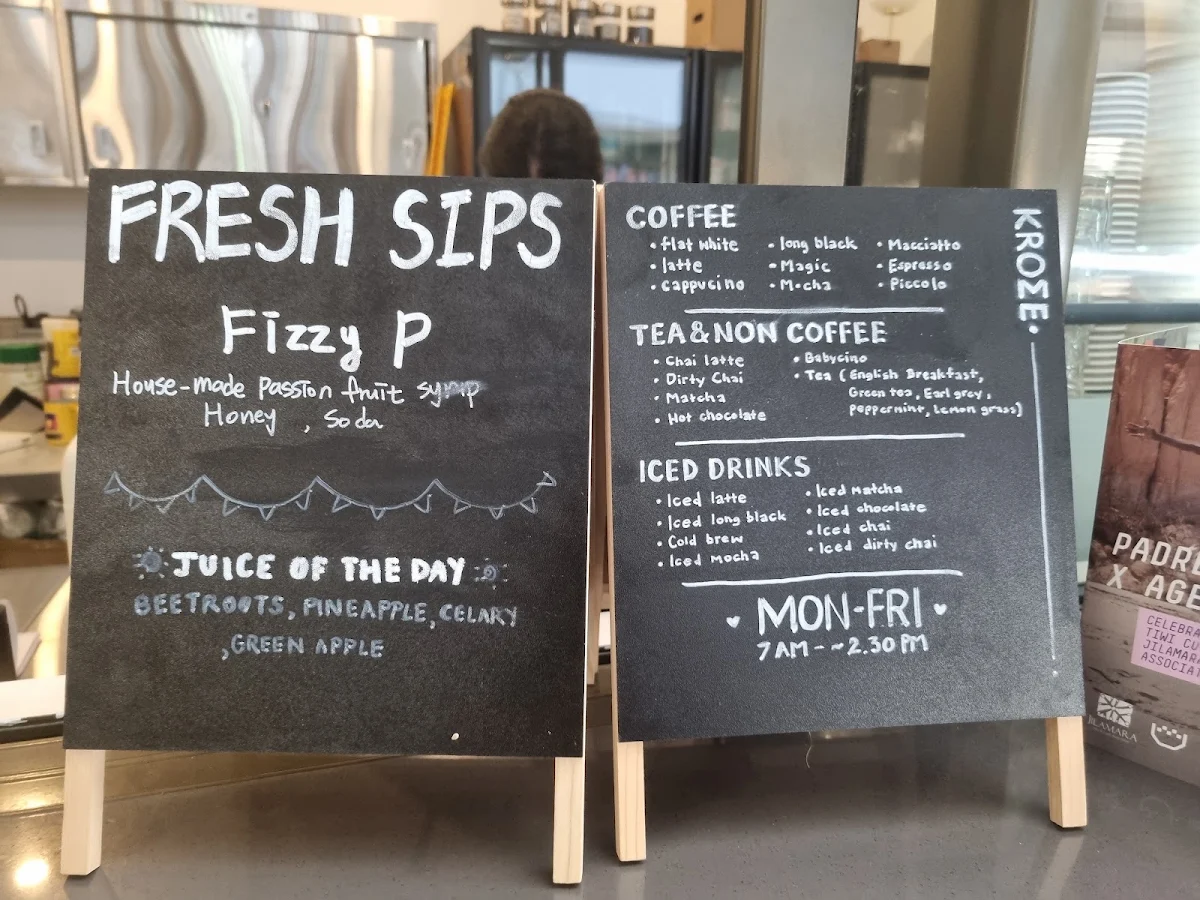 FRESH SIPS
Fizzy P
House-made Passion fruit syrup
Honey , Soda
JUICE OF THE DAY
BEETROOTS, PINEAPPLE, CELARY
,GREEN APPLE
KROME.
COFFEE
• flat white • long black • Macciatto
• latte • Magic • Espresso
• cappucino • Mocha • Piccolo
TEA & NON COFFEE
• Chai latte • Babycino
• Dirty Chai • Tea (English Breakfast,
• Matcha Green tea, Earl grey,
• Hot chocolate Peppermint, Lemon grass)
ICED DRINKS
• Iced latte • Iced Matcha
• Iced long black • Iced chocolate
• Cold brew • Iced chai
• Iced mocha • Iced dirty chai
MON-FRI
7AM -~ 2.30 PM
PADRE
X AGE
CELEBRA
TIWI CU
JILAMARA
ASSOCIAT
JILAMARA